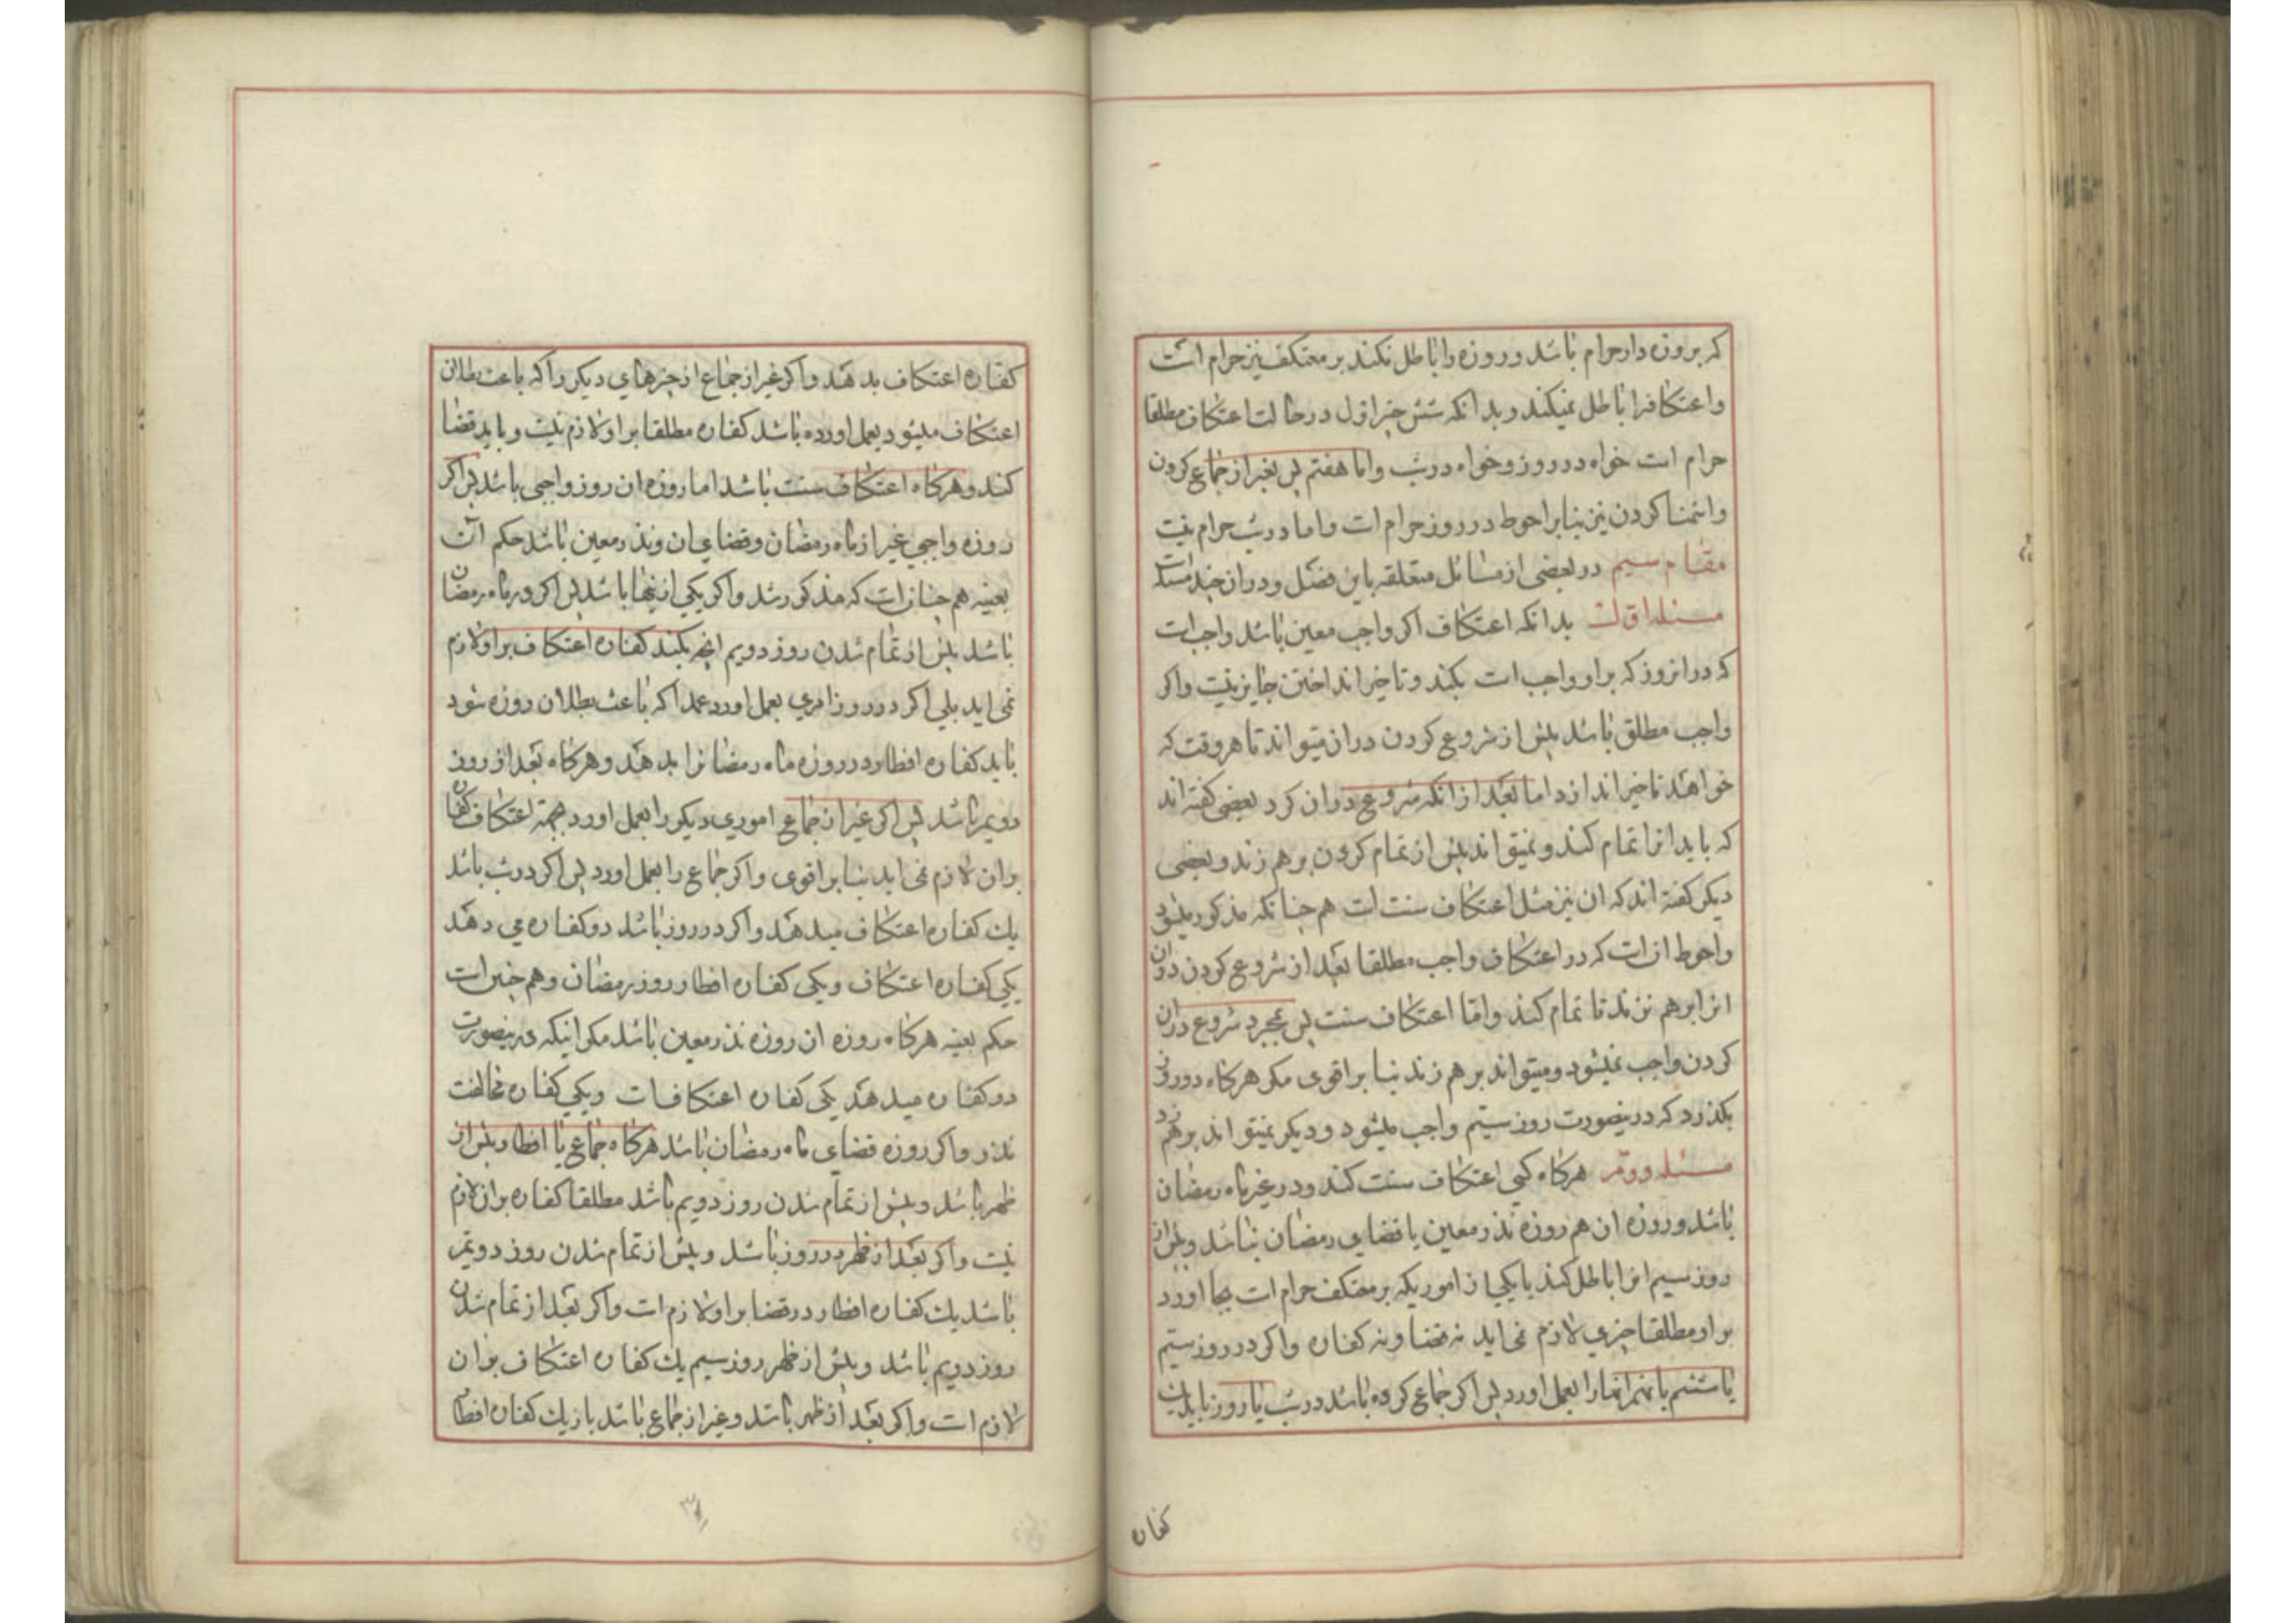 که بروزه دار حرام باشد و روزه را باطل نکند بر معتکف نیز حرام است
و اعتکافرا باطل نمیکند و بدانکه شش چیز اول در حالت اعتکاف مطلقا
حرام است خواه در روز و خواه در شب و اما هفتم پس بغیر از جماع کردن
و استمنا کردن نیز بنا بر احوط در روز حرام است و اما در شب حرام نیست
مقام سیم در بعضی از مسائل متعلقه باین فصل و در ان چند مسئله است
مسئله اول بدانکه اعتکاف اکر واجب معین باشد واجب است
که در انروز که بر او واجب است بکند و تاخیر انداختن جایز نیست و اکر
واجب مطلق باشد پیش از شروع کردن در ان میتواند تا هر وقت که
خواهد تاخیر اندازد اما بعد از انکه شروع در ان کرد بعضی کفته اند
که باید انرا تمام کند و نمیتواند پیش از تمام کردن بر هم زند و بعضی
دیکر کفته اند که ان نیز مثل اعتکاف سنت است هم چنانکه مذکور میشود
و احوط ان است که در اعتکاف واجب مطلقا بعد از شروع کردن در ان
انرا بر هم نزند تا تمام کند و اما اعتکاف سنت پس بمجرد شروع در ان
کردن واجب نمیشود و میتواند بر هم زند بنا بر اقوی مکر هرکاه دو روز
بکذرد که در ینصورت روز سیم واجب میشود و دیکر نمیتواند بر هم زد
مسئله دویم هرکاه کسی اعتکاف سنت کند و در غیر ماه رمضان
باشد و روزه ان هم روزه نذر معین یا قضای رمضان نباشد و پیش از
روز سیم انرا باطل کند یا یکی از اموریکه بر معتکف حرام است بجا اورد
بر او مطلقا چیزی لازم نمی اید نه قضا و نه کفاره و اکر در روز سیم
یا ششم یا نهم اینها را بعمل اورد پس اکر جماع کرده باشد در شب یا روز باید یک
کفاره
کفاره اعتکاف بدهد و اکر غیر از جماع از چیزهای دیکر را که باعث بطلان
اعتکاف میشود بعمل اورده باشد کفاره مطلقا بر او لازم نیست و باید قضا
کند و هرکاه اعتکاف سنت باشد اما روزه ان روز واجبی باشد پس اکر
روزه واجبی غیر از ماه رمضان و قضای ان و نذر معین باشد حکم ان
بعینه هم چنان است که مذکور شد و اکر یکی از اینها باشد پس اکر در ماه رمضان
باشد پیش از تمام شدن روز دویم انچه بکند کفاره اعتکاف بر او لازم
نمی اید بلی اکر در روز امری بعمل اورد عمدا که باعث بطلان روزه شود
باید کفاره افطار در روزه ماه رمضانرا بدهد و هرکاه بعد از روز
دویم باشد پس اکر غیر از جماع اموری دیکر را بعمل اورد جهة اعتکاف کفاره
بر ان لازم نمی اید بنا بر اقوی و اکر جماع را بعمل اورد پس اکر در شب باشد
یک کفاره اعتکاف میدهد و اکر در روز باشد دو کفاره می دهد
یکی کفاره اعتکاف و یکی کفاره افطار روز رمضان و هم چنین است
حکم بعینه هرکاه روزه ان روزه نذر معین باشد مکر اینکه در ینصورت
دو کفاره میدهد یکی کفاره اعتکاف است و یکی کفاره مخالفت
نذر و اکر روزه قضای ماه رمضان باشد هرکاه جماع یا افطار پیش از
ظهر باشد و پیش از تمام شدن روز دویم باشد مطلقا کفاره بر ان لازم
نیست و اکر بعد از ظهر در روز باشد و پیش از تمام شدن روز دویم
باشد یک کفاره افطار در قضا بر او لازم است و اکر بعد از تمام شدن
روز دویم باشد و پیش از ظهر روز سیم یک کفاره اعتکاف بر ان
لازم است و اکر بعد از ظهر باشد و غیر از جماع باشد باز یک کفاره افطار